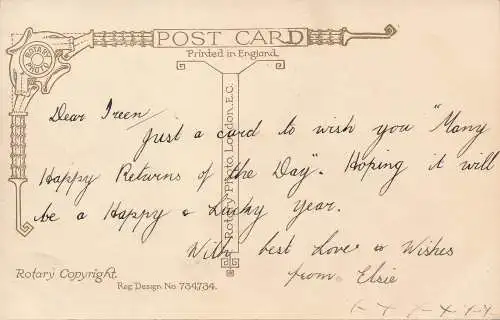 POST CARD
Printed in England.
ROTARY PHOTO
Rotary Photo, London, E.C.
Dear Ireen
Just a card to wish you "Many
Happy Returns of the Day". Hoping it will
be a Happy & Lucky year.
With best Love & Wishes
from Elsie
x x x x x x
Rotary Copyright.
Reg. Design. No. 734734.